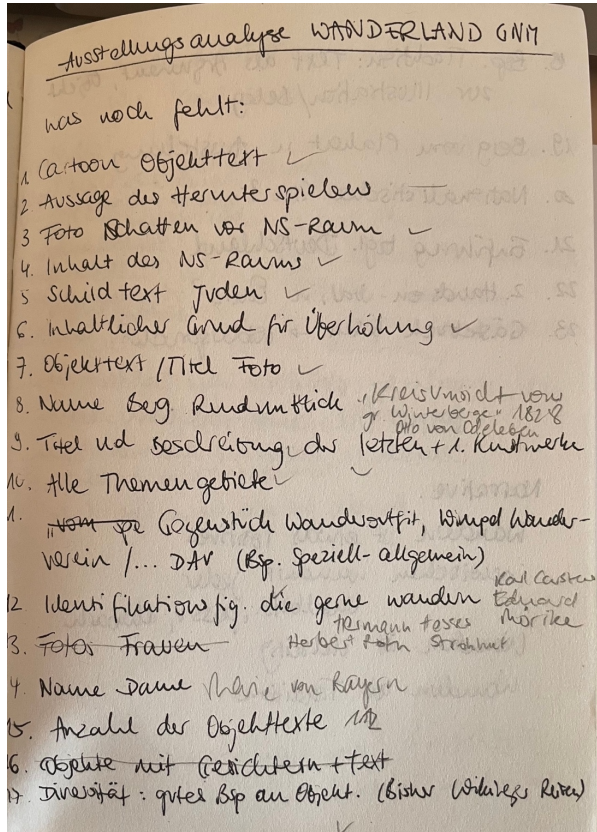 Ausstellungsanalyse WANDERLAND GNM
was noch fehlt:
1 Cartoon Objekttext ✓
2 Aussage des Herunterspielens —
3 Foto Schatten vor NS-Raum ✓
4. Inhalt des NS-Raums ✓
5 Schildtext Juden ✓
6. Inhaltlicher Grund für Überhöhung ✓
7. Objekttext / Titel Foto ✓
8. Name Berg Rundumblick „Kreisansicht vom
gr. Winterberge" 1828
Otto von Odeleben
9. Titel und Beschreibung der letzten + 1. Kunstwerke
10. Alle Themengebiete ✓ ✓
1. Gegenstück Wanderoutfit, Wimpel Wander-
verein /... DAV (Bsp. speziell-allgemein)
12 Identifikationsfig. die gerne wandern Karl Carstens
Eduard
Hermann Hesse Mörike
3. Fotos Frauen Herbert Roth Strohhut
4. Name Dame Marie von Bayern
15. Anzahl der Objekttexte 112
6. Objekte mit Gesichtern + text
17. Diversität: gutes Bsp an Objekt. (Bisher Reisen)
✓